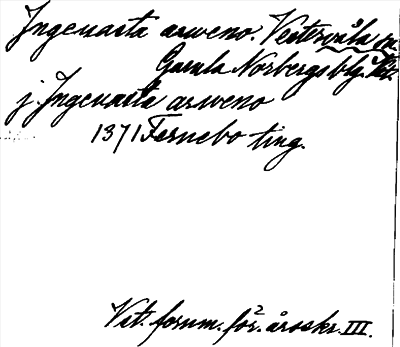 Ingeuasta arweno. Vestervåla sn.
Gamla Norbergs blg. Vstm.
j Ingeuasta arweno
1371 Fernebo ting.
Vst. fornm. för². årsskr. III.